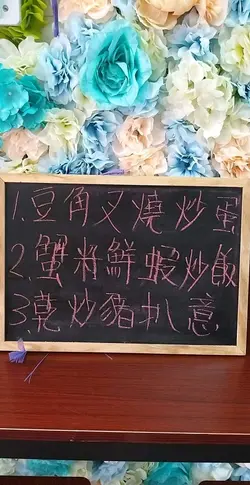 1.豆角叉燒炒蛋
2.蟹籽鮮蝦炒飯
3.乾炒豬扒意